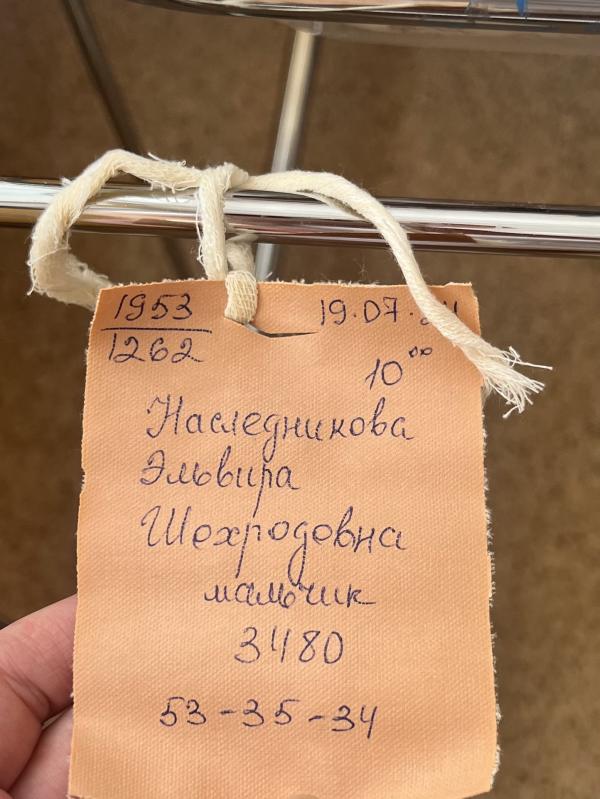 1953
1262
19.07.
10⁰⁰
Наследникова
Эльвира
Шехродовна
мальчик
3480
53-35-34